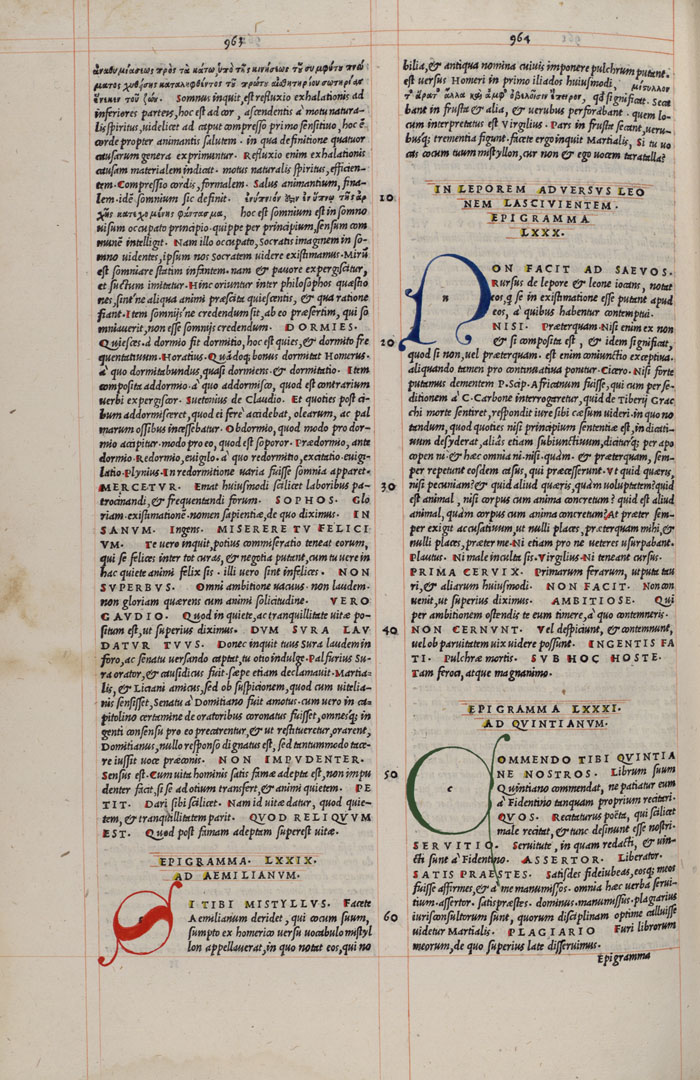 963
ριν. Somnus inquit, est refluxio exhalationis ad
inferiores partes, hoc est ad cor, ascendentis a' motu natura-
li spiritus, uidelicet ad caput compresso primo sensitiuo, hoc ē
corde propter animantis salutem. in qua definitione quatuor
causarum genera exprimuntur. Refluxio enim exhalationis
causam materiem indicat. motus naturalis spiritus, efficien-
tem. Compressio cordis, formalem. Salus animantium, fina-
lem. idē somnium sic definit.
hoc est somnium est in somno
uisum occupato principio. quippe per principium, sensum com
munē intelligit. Nam illo occupato, Socratis imaginem in so-
mno uidentes, ipsum nos Socratem uidere existimamus. Mirū
est somniare statim infantem. nam & pauore expergiscitur,
et suctum imitatur. Hinc oriuntur inter philosophos quæstio
nes, sint'ne aliqua animi præscita quiescentis, & qua ratione
fiant. Item somnijs'ne credendum sit, ab eo præsertim, qui so
mniauerit, non esse somnijs credendum. DORMIES.
Quiesces. a' dormio fit dormitio, hoc est quies, & dormito fre
quentatiuum. Horatius. Quādoq; bonus dormitat Homerus.
a' quo dormitabundus quasi dormiens. & dormitatio. Item
composita addormio. a' quo addormisco, quod est contrarium
uerbi expergiscor. Suetonius de Claudio. Et quoties post ci-
bum addormisceret, quod ei ferè accidebat, olearum, ac pal
marum ossibus incessebatur. Obdormio, quod modo pro dor-
mio accipitur. modo pro eo, quod est soporor. Prædormio, ante
dormio. Redormio, euigilo. a' quo redormitio, excitatio. euigi-
latio. Plynius. In redormitione uaria fuisse somnia apparet.
MERCETVR. Emat huiusmodi scilicet laboribus pa-
trocinandi, & frequentandi forum. SOPHOS. Glo
riam. existimatione. nomen sapientiæ, de quo diximus. IN
SANVM. Ingens. MISERERE TV FELICI
VM. Te uero inquit, potius commiseratio teneat eorum,
qui se felices inter tot curas, & negotia putant, cum tu uere in
hac quiete animi felix sis. illi uero sint infelices. NON
SVPERBVS. Omni ambitione uacuus. non laudem.
non gloriam quærens cum animi solicitudine. VERO
GAVDIO. Quod in quiete, ac tranquillitate uitæ po-
situm est, ut superius diximus. DVM SVRA LAV
DATVR TVVS. Donec inquit tuus Sura laudem in
foro, ac senatu uersando captat, tu otio indulge. Palfurius Su-
ra orator, & causidicus fuit. sæpe etiam declamauit. Martia-
lis, & Liciani amicus, sed ob suspicionem, quod cum uitelia-
nis sensisset, Senatu a' Domitiano fuit amotus. cum uero in ca-
pitolino certamine de oratoribus coronatus fuisset, omnesq; in
genti consensu pro eo precarentur, & ut restitueretur, orarent,
Domitianus, nullo responso dignatus est, sed tantummodo tace
re iussit uoce præconis. NON IMPVDENTER.
Sensus est. Cum uita hominis satis famæ adepta est, non impu
denter facit, si se ad otium transfert, & animi quietem. PE
TIT. Dari sibi scilicet. Nam id uitæ datur, quod quie-
tem, & tranquillitatem parit. QVOD RELIQVVM
EST. Quod post famam adeptam superest uitæ.
EPIGRAMMA. LXXIX.
AD AEMILIANVM.
SI TIBI MISTYLLVS. Facete
Aemilianum deridet, qui cocum suum,
sumpto ex homerico uersu uocabulo mistyl
lon appellauerat, in quo notat eos, qui no
10
20
30
40
50
60
964
bilia, & antiqua nomina cuiuis imponere pulchrum putant.
est uersus Homeri in primo iliados huiusmodi,
qđ significat. Secā
bant in frusta & alia, & uerubus perforabant. quem lo-
cum interpretatus est Virgilius. Pars in frusta secant, ueru-
busq; trementia figunt. facete ergo inquit Martialis, Si tu uo
cas cocum tuum mistyllon, cur non & ego uocem taratalla?
IN LEPOREM ADVERSVS LEO
NEM LASCIVIENTEM.
EPIGRAMMA
LXXX.
NON FACIT AD SAEVOS.
Rursus de lepore & leone iocans, notat
eos, q se in existimatione esse putant apud
eos, a' quibus habentur contemptui.
NISI. Præterquam. Nisi enim ex non
& si composita est, & idem significat,
quod si non, uel præterquam. est enim coniunctio exceptiua.
aliquando tamen pro continuatiua ponitur. Cicero. Nisi forte
putamus dementem P. Scip. Africanum fuisse, qui cum per se-
ditionem a' C. Carbone interrogaretur, quid de Tiberij Grac
chi morte sentiret, respondit iure sibi cæsum uideri. in quo no
tandum, quod quoties nisi principium sententiæ est, indicati-
uum desyderat, aliâs etiam subiunctiuum, diciturq; per apo
copen ni. & hæc omnia ni. nisi. quàm. & præterquam, sem-
per repetunt eosdem casus, qui præcesserunt. Vt quid quæris,
nisi pecuniam? & quid aliud quæris, quàm uoluptatem? quid
est animal, nisi corpus cum anima concretum? quid est aliud
animal, quàm corpus cum anima concretum? At præter sem-
per exigit accusatiuum, ut nulli places, præterquam mihi, &
nulli places, præter me. Ni etiam pro ne ueteres usurpabant.
Plautus. Ni male inculta sis. Virgilius. Ni teneant cursus.
PRIMA CERVIX. Primarum ferarum, utputa tau
ri, & aliarum huiusmodi. NON FACIT. Non con
uenit, ut superius diximus. AMBITIOSE. Qui
per ambitionem ostendis te eum timere, a' quo contemneris.
NON CERNVNT. Vel despiciunt, & contemnunt,
uel ob paruitatem uix uidere possunt. INGENTIS FA
TI. Pulchræ mortis. SVB HOC HOSTE.
Tam feroci, atque magnanimo.
EPIGRAMMA LXXXI.
AD QVINTIANVM.
COMMENDO TIBI QVINTIA
NE NOSTROS. Librum suum
Quintiano commendat, ne patiatur eum
a' Fidentino tanquam proprium recitari.
QVOS. Recitaturus poëta, qui scilicet
male recitat, & tunc desinunt esse nostri.
SERVITIO. Seruitute, in quam redacti, & uin-
cti sunt a' Fidentino. ASSERTOR. Liberator.
SATIS PRAESTES. Satisdes fideiubeas, eosq; meos
fuisse affirmes, & a' me manumissos. omnia hæc uerba serui-
tium. assertor. satispræstes. dominus. manumissus. plagiarius
iurisconsultorum sunt, quorum disciplinam optime calluisse
uidetur Martialis. PLAGIARIO Furi librorum
meorum, de quo superius late disseruimus.
Epigramma